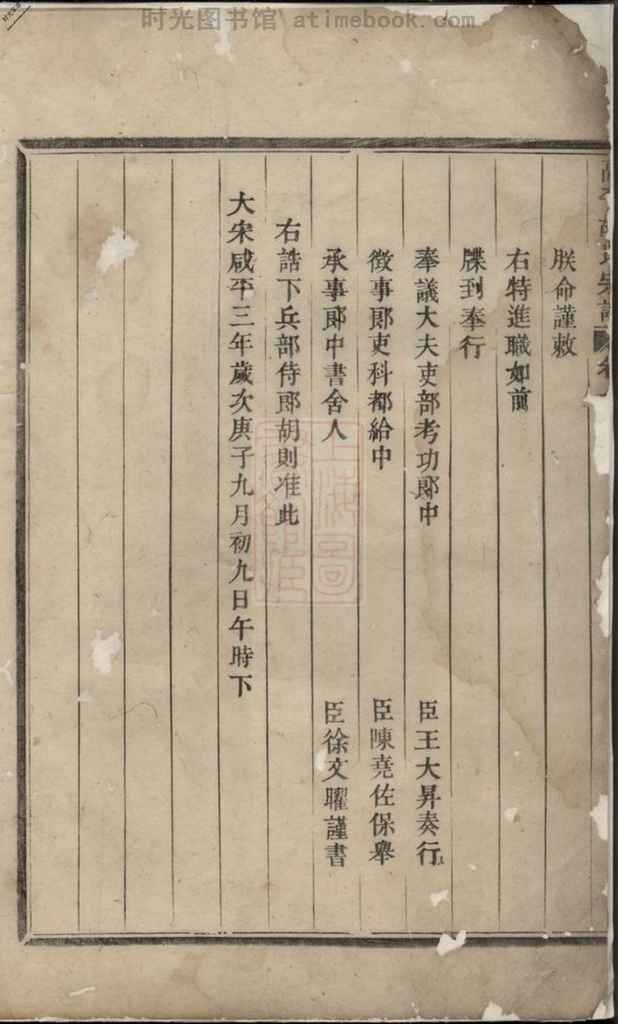 时光图书馆 atimebook.com
朕命謹敕
右特進職如前
牒到奉行
奉議大夫吏部考功郞中 臣王大昇奏行
徴事郞吏科都給中 臣陳堯佐保舉
承事郞中書舍人 臣徐文曜謹書
右誥下兵部侍郞胡則准此
大宋咸平三年歲次庚子九月初九日午時下